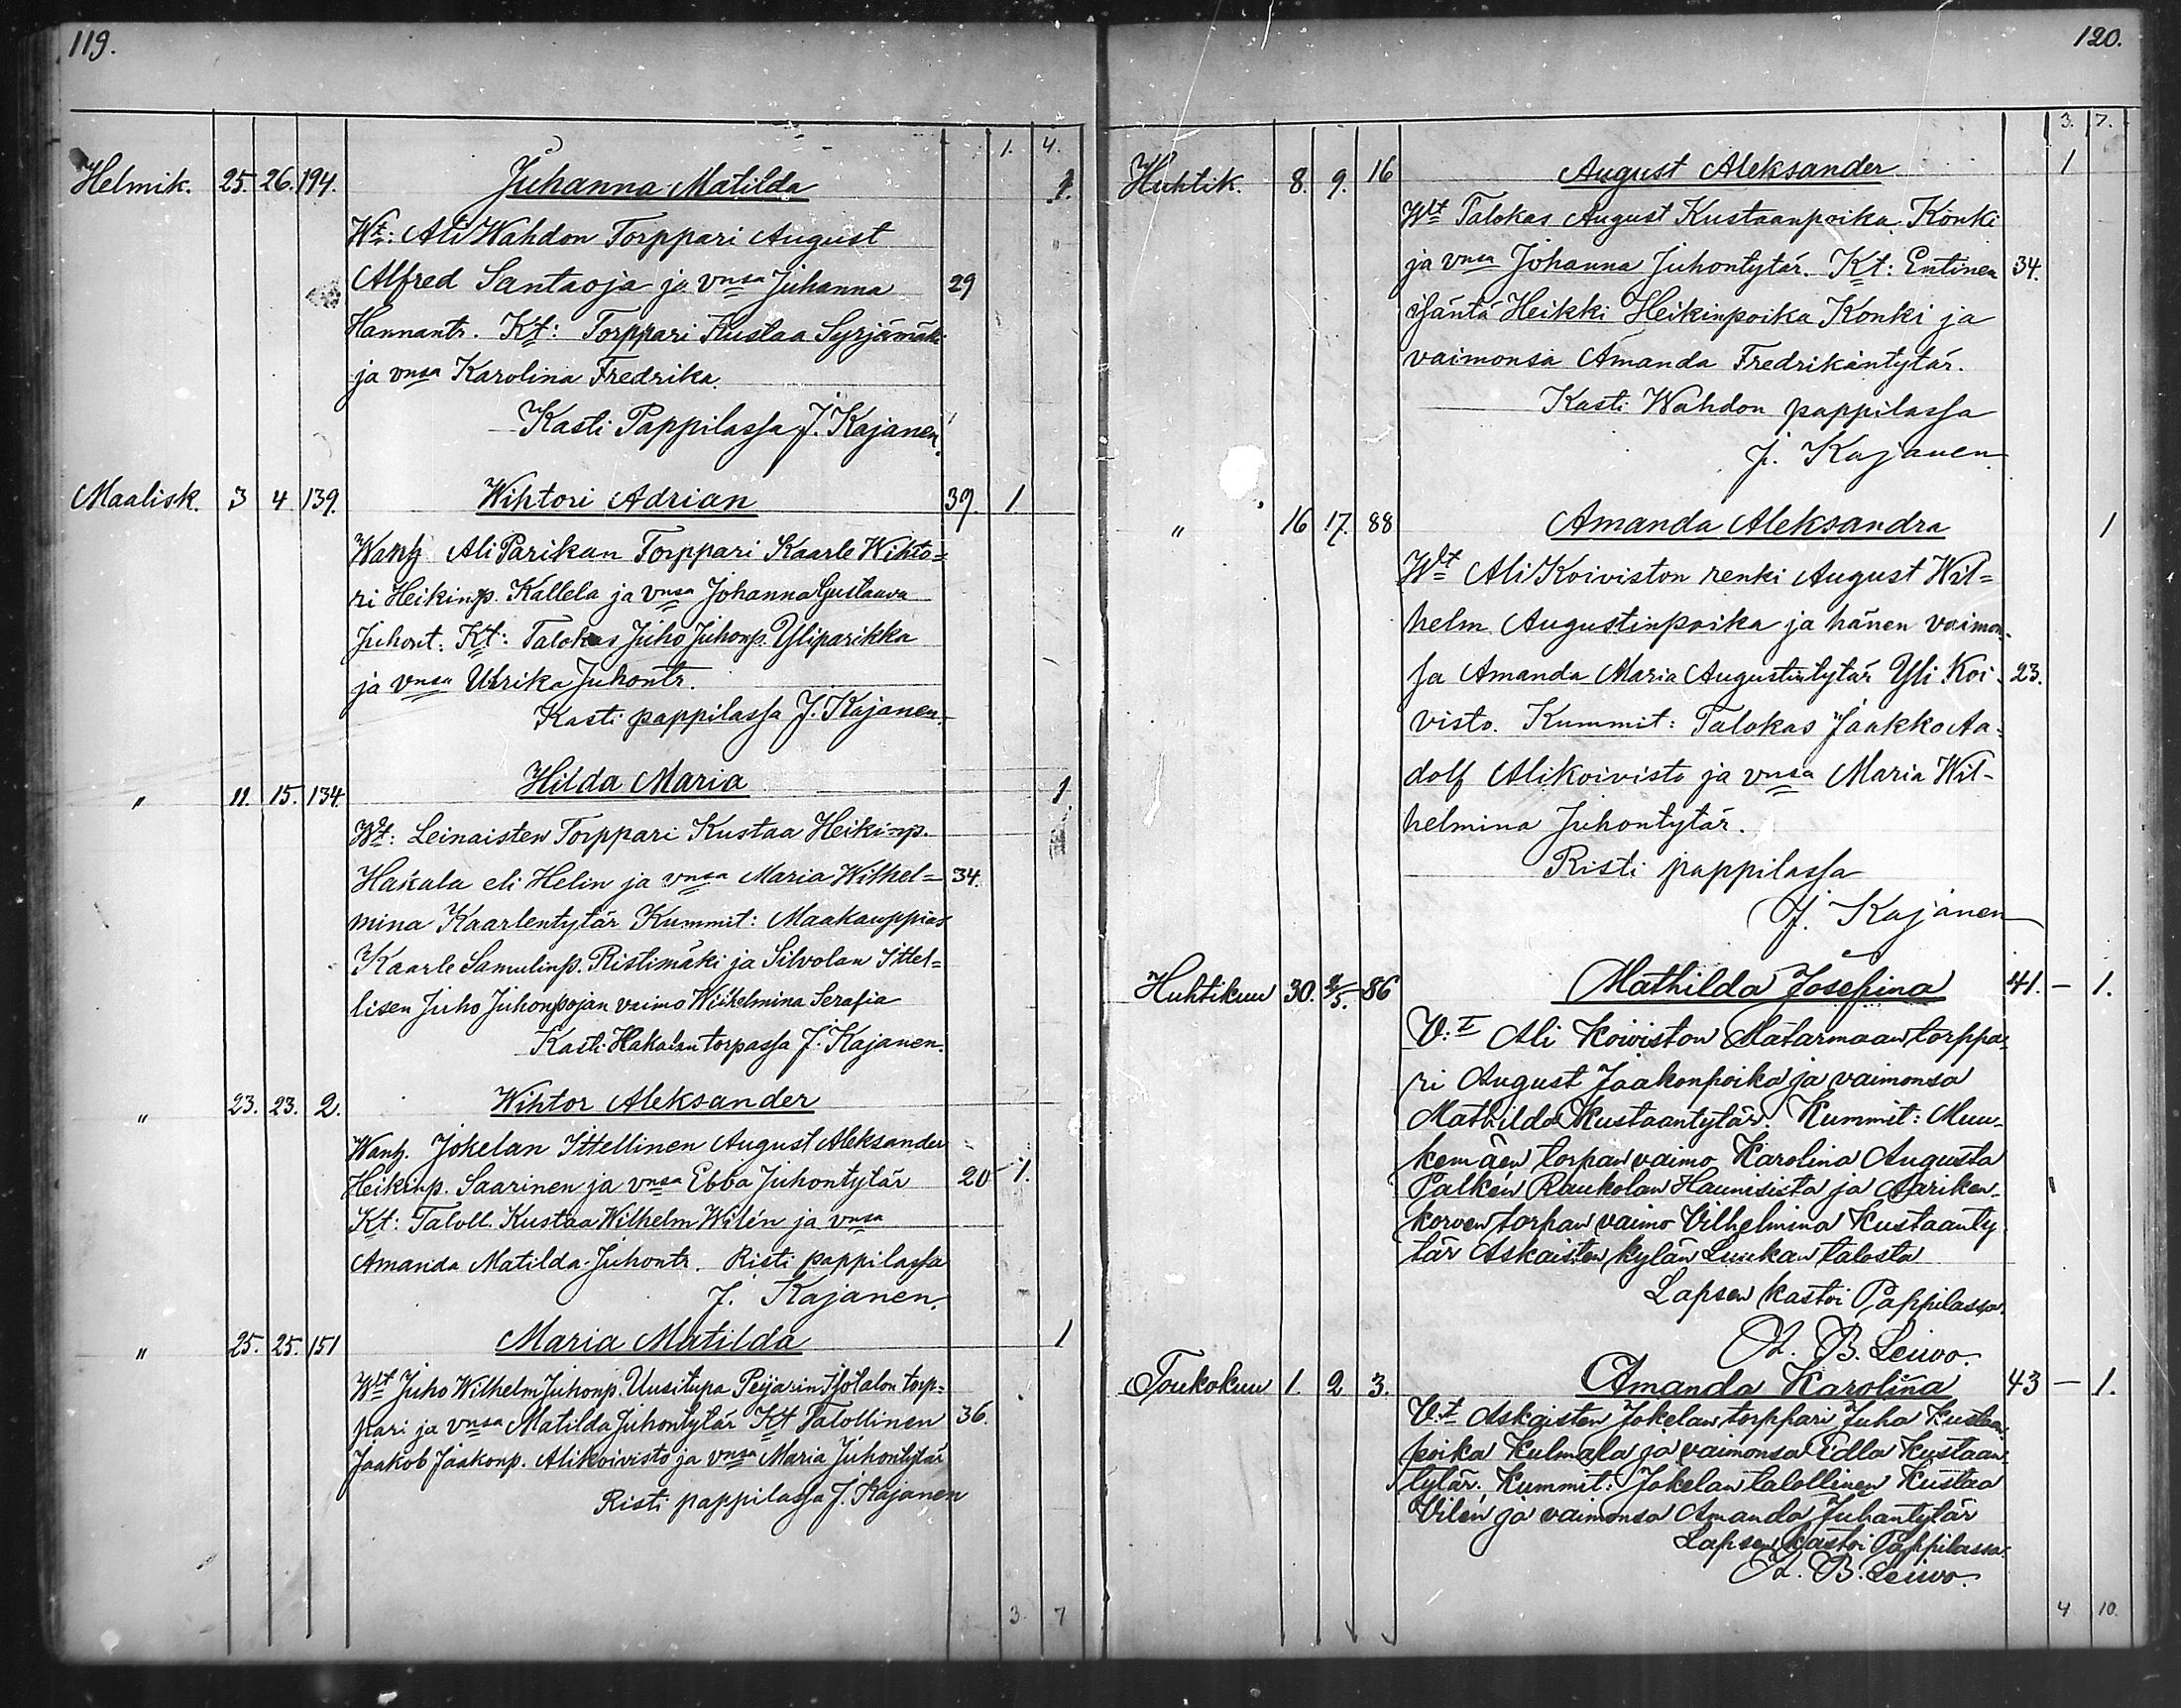 119.
1. 4.
Helmik. 25. 26. 194. Juhanna Matilda 1.
Wt: Ali Wahdon Torppari August
Alfred Santaoja ja vnsa Juhanna 29
Hannantr. Kt: Torppari Kustaa Syrjämäki
ja vnsa Karolina Fredrika.
Kasti Pappilassa J. Kajanen.
Maalisk. 3 4 139. Wihtori Adrian 39. 1
Wanh Ali Parikan Torppari Kaarle Wihto=
ri Heikinp. Kallela ja vnsa Johanna Gustaava
Juhont. Kt: Talokas Juho Juhonp. Yliparikka
ja vnsa Ulrika Juhontr.
Kasti pappilassa J. Kajanen.
" 11. 15. 134. Hilda Maria 1.
Wt: Leinaisten Torppari Kustaa Heikinp.
Hakala eli Helin ja vnsa Maria Wilhel= 34.
mina Kaarlentytär Kummit: Maakauppias
Kaarle Samulinp. Ristimäki ja Silvolan Ittel=
lisen Juho Juhonpojan vaimo Wilhelmina Serafia
Kasti Hakalan torpassa J. Kajanen.
" 23. 23. 2. Wihtor Aleksander
Wanh. Jokelan Ittellinen August Aleksander
Heikinp. Saarinen ja vnsa Ebba Juhontytär 20 1.
Kt: Taloll. Kustaa Wilhelm Wilén ja vnsa
Amanda Matilda Juhontr. Risti pappilassa
J. Kajanen.
" 25. 25. 151 Maria Matilda 1
Wt Juho Wilhelm Juhonp. Uusitupa Peijarin Isotalon torp=
pari ja vnsa Matilda Juhontytär Kt Talollinen 36.
Jaakob Jaakonp. Alikoivisto ja vnsa Maria Juhontytär
Risti pappilassa J. Kajanen
3. 7
120.
3. 7.
Huhtik. 8. 9. 16 August Aleksander 1
Wt Talokas August Kustaanpoika Konki
ja vnsa Johanna Juhontytär. Kt: Entinen 34.
isäntä Heikki Heikinpoika Konki ja
vaimonsa Amanda Fredrikantytär.
Kasti Wahdon pappilassa
J. Kajanen.
" 16 17. 88 Amanda Aleksandra 1
Wt Ali Koiviston renki August Wil=
helm Augustinpoika ja hänen vaimon-
sa Amanda Maria Augustintytär Yli Koi- 23.
visto. Kummit: Talokas Jaakko Aa=
dolf Alikoivisto ja vnsa Maria Wil-
helmina Juhontytär.
Risti pappilassa
J. Kajanen
Huhtikuu 30. 2/5. 86 Mathilda Josefina 41. — 1.
V:t Ali Koiviston Mätarmaan torppa-
ri August Jaakonpoika ja vaimonsa
Mathilda Kustaantytär. Kummit: Muu-
kemäen torpan vaimo Karolina Augusta
Palkén Raukolan Haunisista ja Aariken-
korven torpan vaimo Vilhelmina Kustaanty-
tär Askaisten kylän Luukan talosta
Lapsen kastoi Pappilassa.
A. B. Leiwo.
Toukokuu 1. 2 3. Amanda Karolina 43 — 1.
V:t Askaisten Jokelan torppari Juha Kustaan-
poika Kulmala ja vaimonsa Edla Kustaan-
tytär. Kummit: Jokelan talollinen Kustaa
Vilén ja vaimonsa Amanda Juhantytär
Lapsen kastoi Pappilassa.
A. B. Leiwo.
4 10.